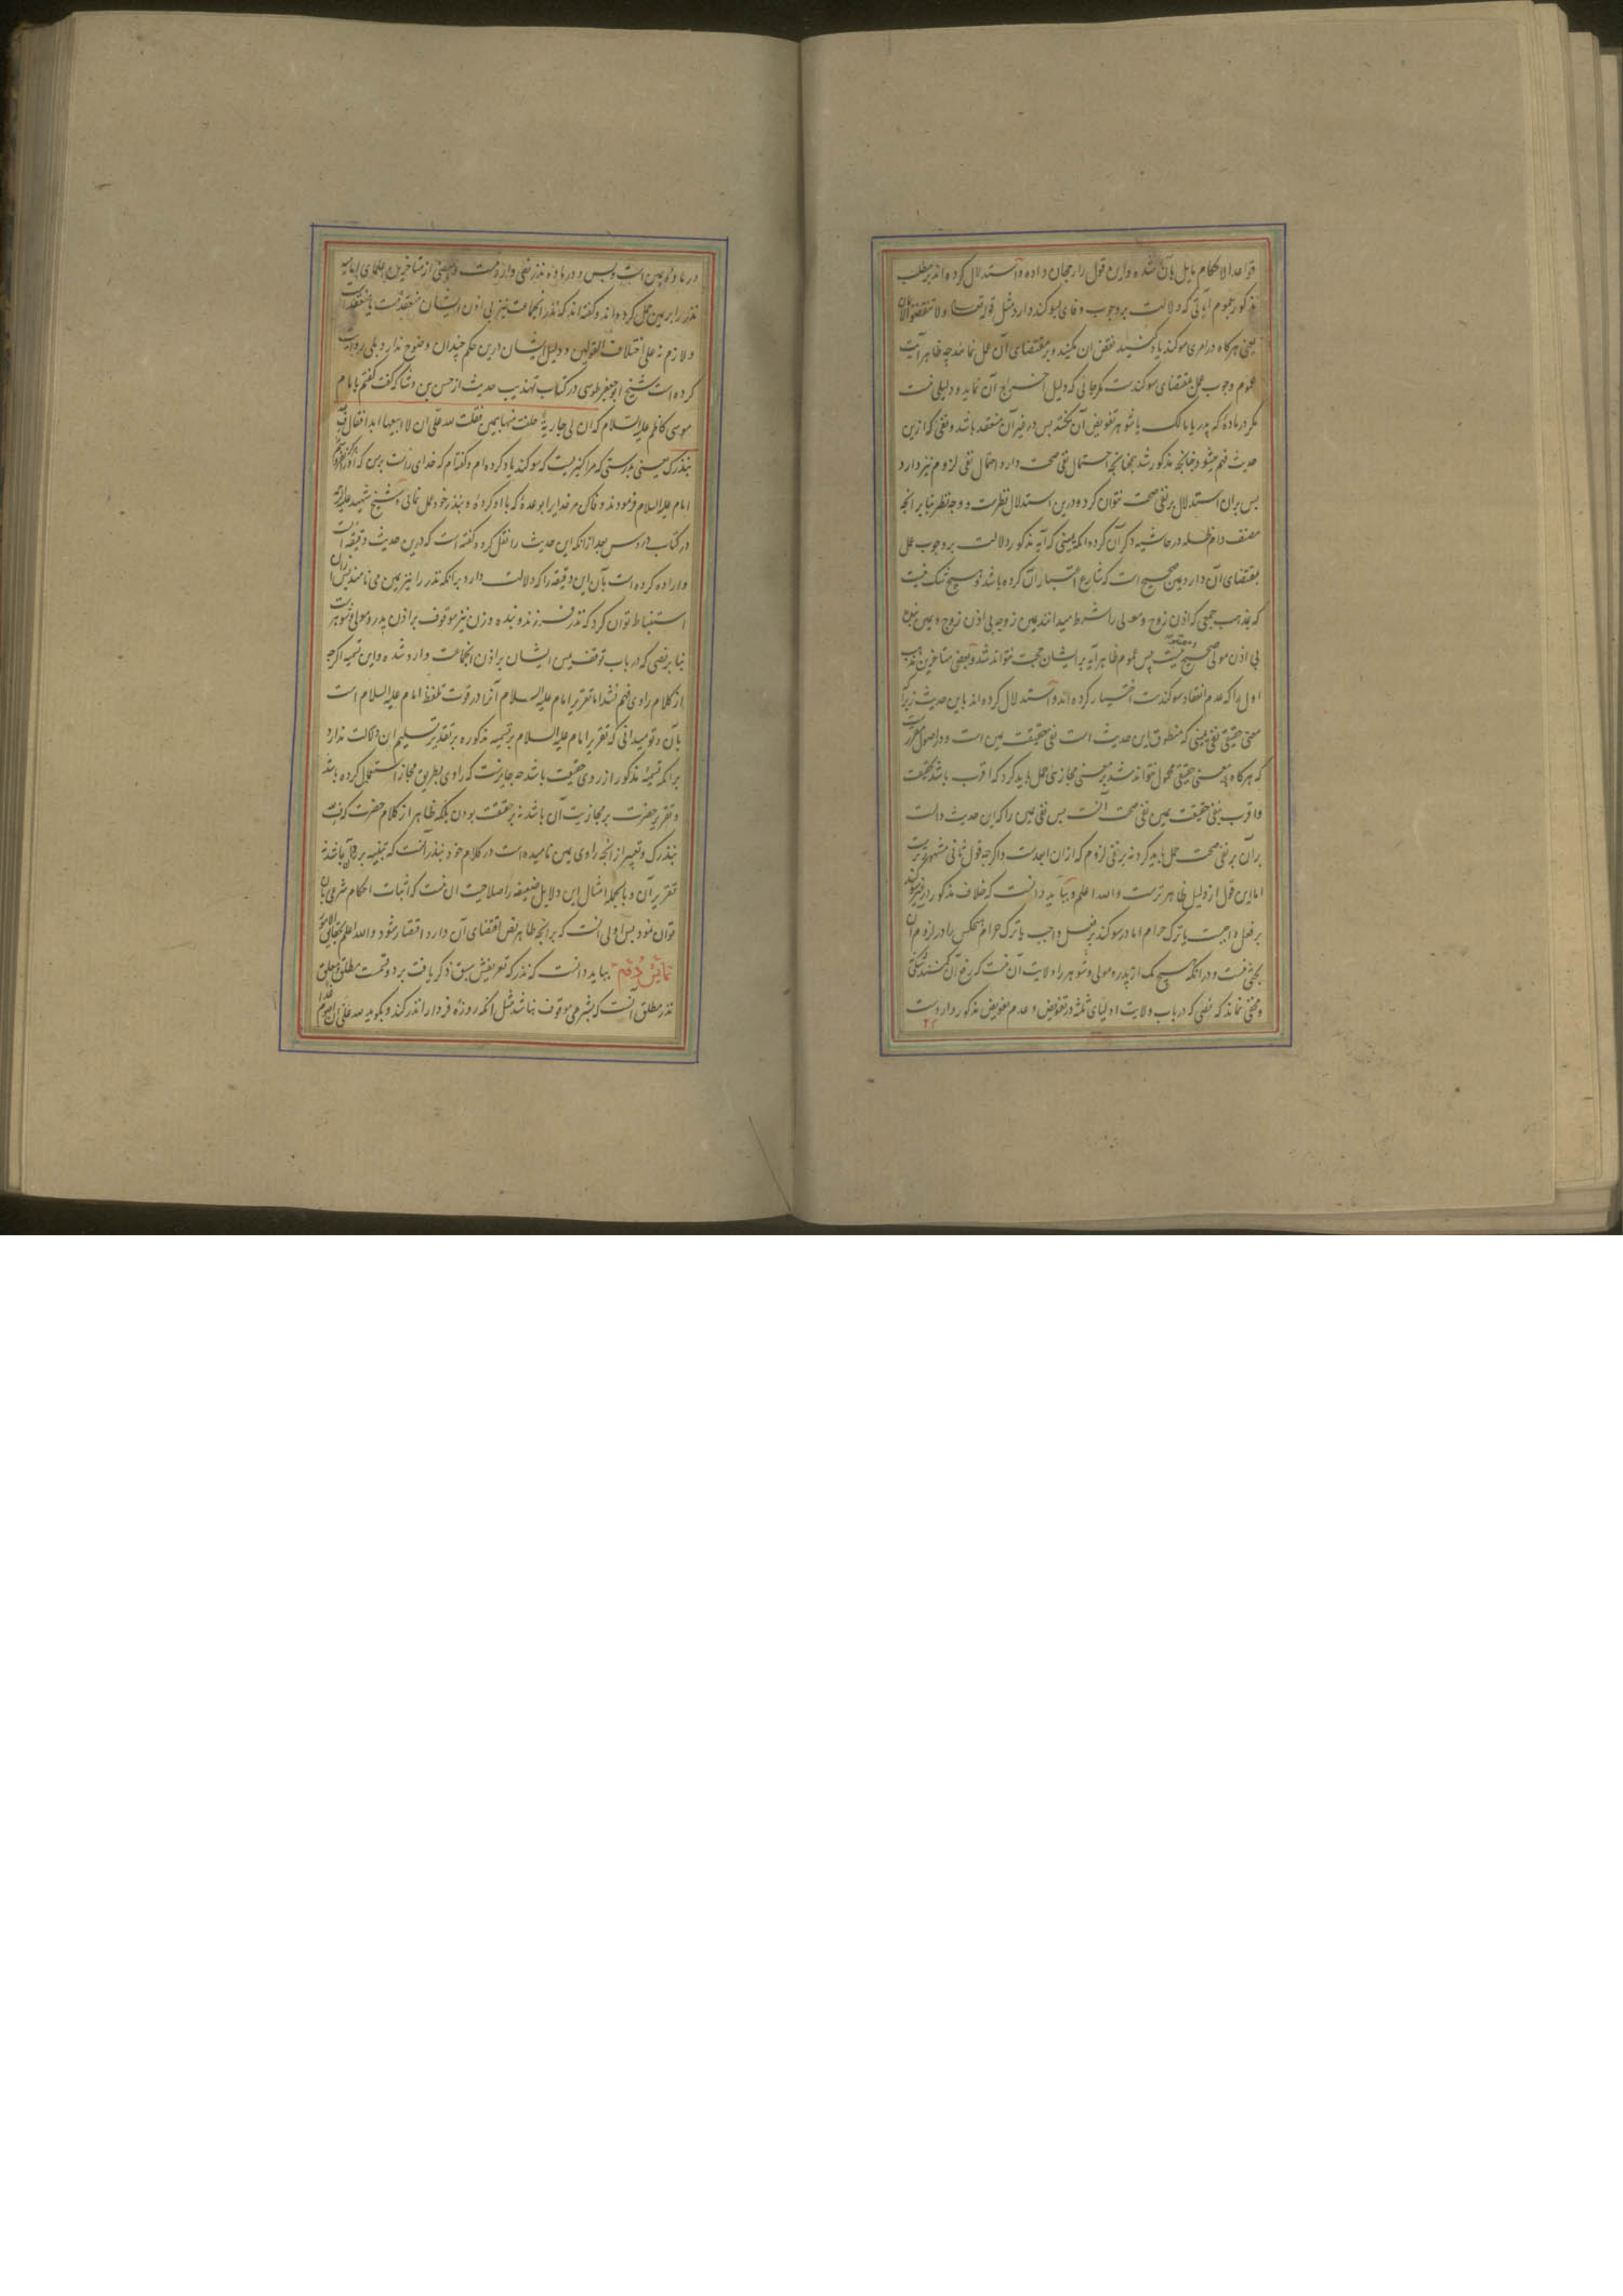 قواعد الاحکام مایل بآن شده و این قول را رجحان داده و استدلال کرده اند بر مطلب
مذکور بعموم آیاتی که دلالت بر وجوب وفای بسوکند دارد مثل قوله تعالی ولا تنقضوا الایمان
یعنی هرکاه در امری سوکند یاد کنید نقض ان مکنید و بر مقتضای آن عمل نمائید چه ظاهر آیت
عموم وجوب عمل بمقتضای سوکندست مکر جائی که دلیل اخراج آن نماید و دلیلی نیست
مکر در ماده که پدر یا مالک یا شوهر تفویض آن نکنند پس در غیر آن منعقد باشد و نفیی که ازین
حدیث فهم میشود چنانچه مذکور شد همچنانچه احتمال نفی صحت دارد احتمال نفی لزوم نیز دارد
پس بران استدلال بر نفی صحت نتوان کرد و درین استدلال نظرست و وجه نظر بنا بر انچه
مصنف دام ظله در حاشیه ذکر آن کرده انکه یمینی که آیه مذکور دلالت بر وجوب عمل
بمقتضای آن دارد یمین صحیح است که شارع اعتبار آن کرده باشد و هیچ شک نیست
که بمذهب جمعی که اذن زوج و مولی را شرط میدانند یمین زوجه بی اذن زوج و یمین بنده
بی اذن مولی صحیح نیست پس عموم ظاهر آیه بر ایشان حجت نتواند شد و بعضی متاخرین مذهب
اول را که عدم انعقاد سوکندست اختیار کرده اند و استدلال کرده اند باین حدیث زیرا که
معنی حقیقی نفی یمینی که منطوق این حدیث است نفی حقیقت یمین است و در اصول مقررست
که هرکاه بر معنی حقیقی محمول نتواند شد بر معنی مجازی حمل باید کرد که اقرب باشد بحقیقت
و اقرب بنفی حقیقت یمین نفی صحت آنست پس نفی یمین را که این حدیث دالست
بران بر نفی صحت حمل باید کرد نه بر نفی لزوم که ازان ابعدست و اکرچه قول ثانی مشهورترست
اما این قول از دلیل ظاهرترست والله اعلم و بباید دانست که خلاف مذکور در غیر سوکند
بر فعل واجبست یا ترک حرام اما در سوکند بر فعل واجب یا ترک حرام هیچکس را در لزوم آن
بحثی نیست و در انکه هیچ یک از پدر و مولی و شوهر را ولایت آن نیست که منع آن کنند شکی نی
و مخفی نماند که نصی که در باب ولایت اولیای ثلثه در تفویض و عدم تفویض مذکور وارد است
در ماده یمین است و بس و در ماده نذر نصی وارد نیست و بعضی از متاخرین علمای امامیه
نذر را بر یمین حمل کرده اند و کفته اند که نذر انجماعت نیز بی اذن ایشان منعقد نیست یا منعقدست
و لازم نه علی اختلاف القولین و دلیل ایشان درین حکم چندان وضوح ندارد بلی روایت
کرده است شیخ ابوجعفر طوسی در کتاب تهذیب حدیث از حسن بن وشا که کفت کفتم بامام
موسی کاظم علیه السلام که ان لی جاریة حلفت منها بیمین فقلت لله علی ان لا ابیعها ابدا فقال ف
بنذرک یعنی بدرستی که مرا کنیزیست که سوکند یاد کرده ام و کفته ام که خدای راست برمن که
امام علیه السلام فرمودند وفا کن مر خدایرا بوعده که با او کرده و بنذر خود عمل نمائی و شیخ شهید علیه الرحمه
در کتاب دروس بعد ازانکه این حدیث را نقل کرده کفته است که درین حدیث دقیقه است
و اراده کرده است بآن این دقیقه را که دلالت دارد برانکه نذر را نیز یمین می نامند پس ازان
استنباط توان کرد که نذر فرزند و بنده و زن نیز موقوف بر اذن پدر و مولی و شوهرست
بنا بر نصی که در باب توقف یمین ایشان بر اذن انجماعت وارد شده و این تسمیه اکرچه
از کلام راوی فهم شد اما تقریر امام علیه السلام آنرا در قوت تلفظ امام علیه السلام است
بآن و تو میدانی که تقریر امام علیه السلام بر تسمیه مذکوره بر تقدیر تسلیم ان دلالت ندارد
برانکه تسمیه مذکور از روی حقیقت باشد چه جایزست که راوی بطریق مجاز استعمال کرده باشد
و تقریر حضرت بر مجازیت آن باشد نه بر حقیقت بودن بلکه ظاهر از کلام حضرت که ف
بنذرک و تعبیر از انچه راوی یمین نامیده است در کلام خود بنذر آنست که تنبیه بر باشد نه
تقریر آن و بالجمله امثال این دلایل ضعیفه را صلاحیت ان نیست که اثبات احکام شرعی بان
توان نمود پس اولی انست که بر انچه ظاهر نص اقتضای آن دارد اقتصار شود والله اعلم بحقایق الامور
نمایش دویم بباید دانست که نذر که تعریفش سبق ذکر یافت بر دو قسمت مطلق و معلق
نذر مطلق آنست که بشرطی موقوف نباشد مثل انکه روزه فردا را نذر کند و بکوید لله علی ان اصوم غدا